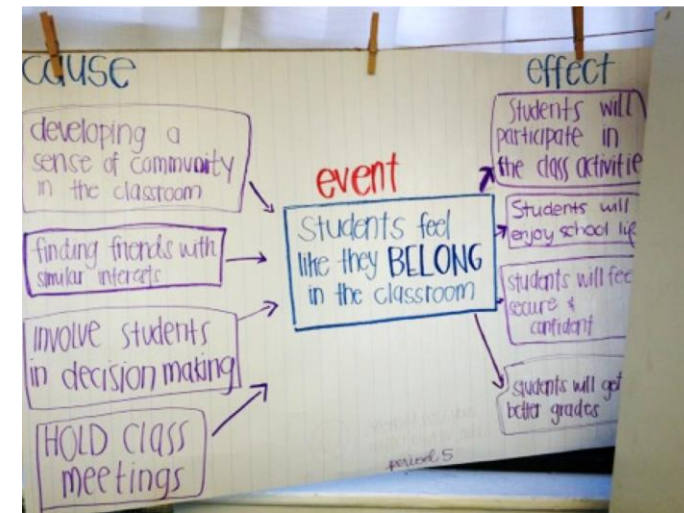 cause
developing a
sense of community
in the classroom
finding friends with
similar interests
involve students
in decision making
HOLD class
meetings
event
Students feel
like they BELONG
in the classroom
effect
Students will
participate in
the class activitie
Students will
enjoy school lif
students will fee
secure &
confidant
students will get
better grades
period 5